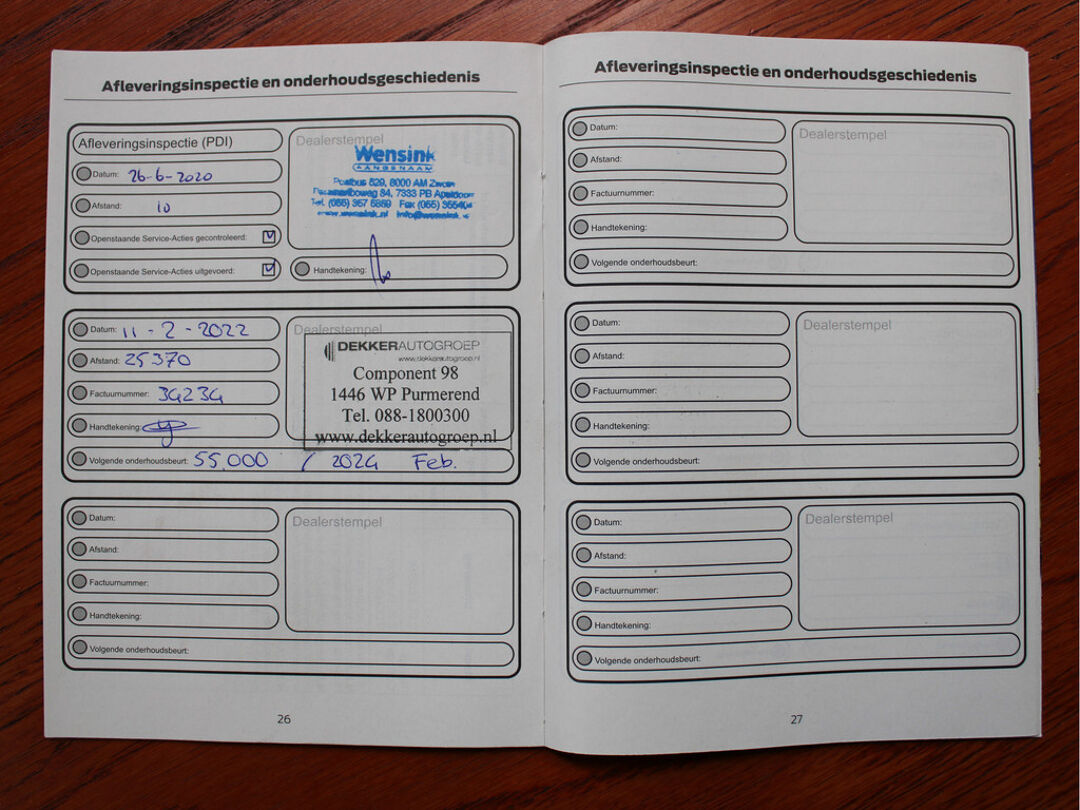 Afleveringsinspectie en onderhoudsgeschiedenis
Afleveringsinspectie (PDI)
Datum: 26-6-2020
Afstand: 10
Openstaande Service-Acties gecontroleerd:
Openstaande Service-Acties uitgevoerd:
Dealerstempel
Wensink
AANGENAAM
Postbus 529, 8000 AM Zwolle
84, 7333 PB Apeldoorn
Tel. (055) 357 5859 Fax (055)
Handtekening:
Datum: 11-2-2022
Afstand: 25370
Factuurnummer: 34234
Handtekening:
Dealerstempel
DEKKERAUTOGROEP
www.dekkerautogroep.nl
Component 98
1446 WP Purmerend
Tel. 088-1800300
www.dekkerautogroep.nl
Volgende onderhoudsbeurt: 55.000 / 2024 Feb.
Datum:
Afstand:
Factuurnummer:
Handtekening:
Dealerstempel
Volgende onderhoudsbeurt:
26
Afleveringsinspectie en onderhoudsgeschiedenis
Datum:
Afstand:
Factuurnummer:
Handtekening:
Dealerstempel
Volgende onderhoudsbeurt:
Datum:
Afstand:
Factuurnummer:
Handtekening:
Dealerstempel
Volgende onderhoudsbeurt:
Datum:
Afstand:
Factuurnummer:
Handtekening:
Dealerstempel
Volgende onderhoudsbeurt:
27